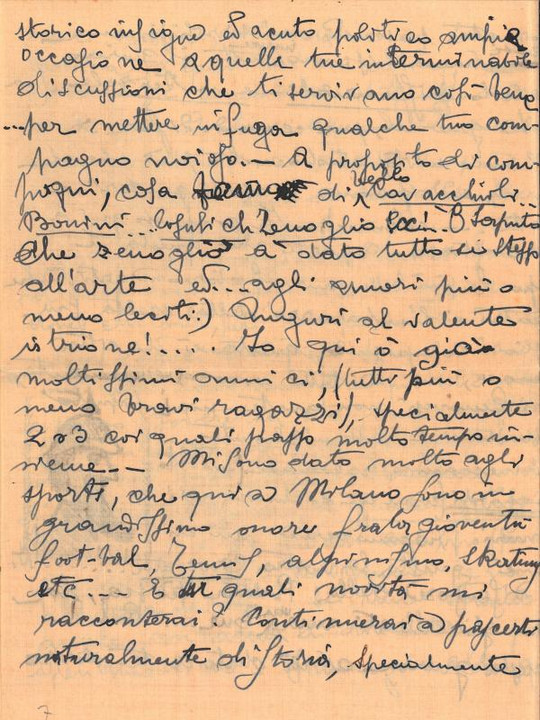 storico insigne ed acuto politico ampia
occasione a quelle tue interminabili
discussioni che ti servivano così bene
...per mettere in fuga qualche tuo com-
pagno noioso. — A proposito di com-
pagni, cosa di bello
Cavacchioli..
Bonini... Zenoglio O saputo
che Zenoglio à dato tutto se stesso
all'arte ed... agli amori più o
meno leciti.) Auguri al valente
istrione!.... Io qui ò già
moltissimi amici, (tutti più o
meno bravi ragazzi), specialmente
2 o 3 coi quali passo molto tempo in-
sieme — Mi sono dato molto agli
sports, che qui a Milano sono in
grandissimo onore fra la gioventù
foot-bal, Tennis, alpinismo, skating
etc. — E tu quali novità mi
racconterai? Continuerai a pascerti
naturalmente di Storia, specialmente
7